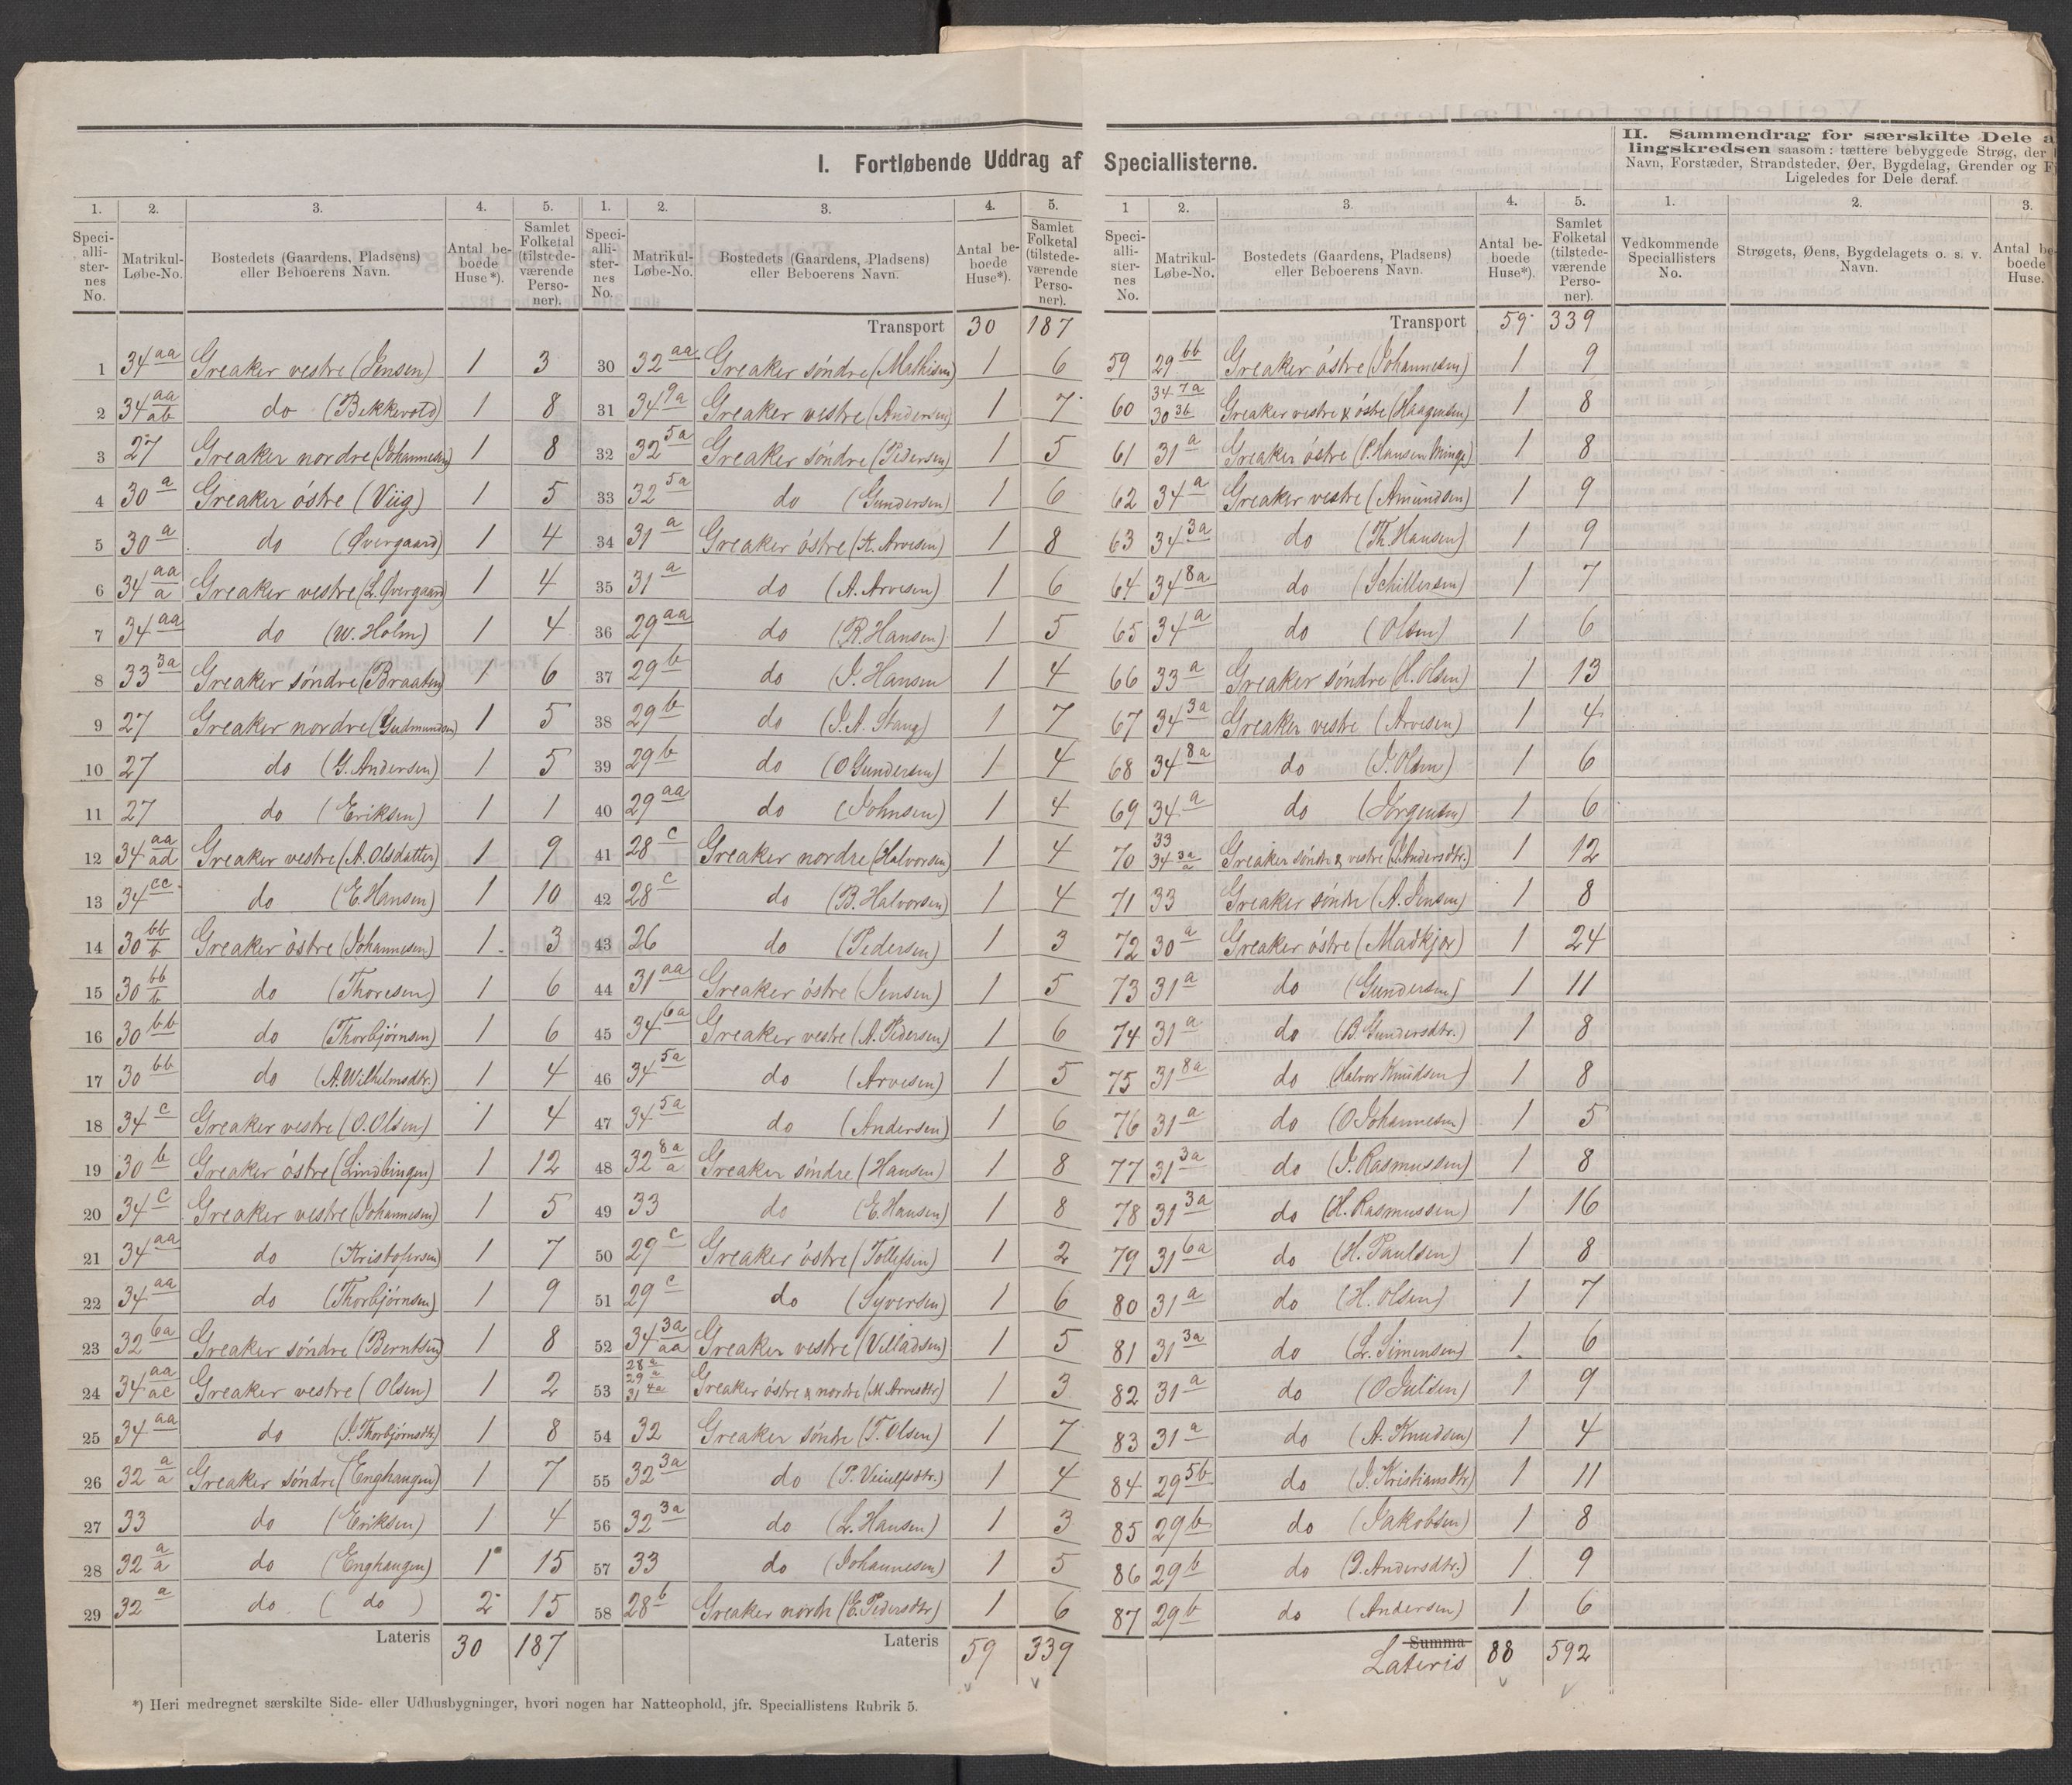 I. Fortløbende Uddrag af Speciallisterne.
II. Sammendrag for særskilte Dele a
lingskredsen saasom: tættere bebyggede Strøg, der
Navn, Forstæder, Strandsteder, Øer, Bygdelag, Grender og F
Ligeledes for Dele deraf.
1. 2. 3. 4. 5.
Speci-alli-ster-nes No. Matrikul-Løbe-No. Bostedets (Gaardens, Pladsens) eller Beboerens Navn. Antal be-boede Huse*). Samlet Folketal (tilstede-værende Perso-ner).
1 34 aa Greaker vestre (Jensen) 1 3
2 34 aa ab do (Bekkevold) 1 8
3 27 Greaker nordre (Johannesen) 1 8
4 30 a Greaker östre (Viig) 1 5
5 30 a do (Øvergaard) 1 4
6 34 aa a Greaker vestre (L. Øvergaard) 1 4
7 34 aa do (W. Holm) 1 4
8 33 3a Greaker søndre (Braaten) 1 6
9 27 Greaker nordre (Gudmundsen) 1 5
10 27 do (G. Andersen) 1 5
11 27 do (Eriksen) 1 1
12 34 aa ad Greaker vestre (A. Olsdatter) 1 9
13 34 cc do (E. Hansen) 1 10
14 30 bb b Greaker östre (Johannesen) 1 3
15 30 bb b do (Thoresen) 1 6
16 30 bb do (Thorbjørnsen) 1 6
17 30 bb do (A. Wilhelmsdtr.) 1 4
18 34 c Greaker vestre (O. Olsen) 1 4
19 30 b Greaker östre (Lindbingen) 1 12
20 34 c Greaker vestre (Johannesen) 1 5
21 34 aa do (Kristofersen) 1 7
22 34 aa do (Thorbjørnsen) 1 9
23 32 6a Greaker søndre (Berntsen) 1 8
24 34 aa ac Greaker vestre (Olsen) 1 2
25 34 aa do (J. Thorbjørnsdtr) 1 8
26 32 a a Greaker søndre (Enghaugen) 1 7
27 33 do (Eriksen) 1 4
28 32 a a do (Enghaugen) 1 15
29 32 a do ( do ) 2 15
Lateris 30 187
1. 2. 3. 4. 5.
Speci-alli-ster-nes No. Matrikul-Løbe-No. Bostedets (Gaardens, Pladsens) eller Beboerens Navn. Antal be-boede Huse*). Samlet Folketal (tilstede-værende Perso-ner).
Transport 30 187
30 32 aa Greaker søndre (Mathisen) 1 6
31 34 9a Greaker vestre (Andersen) 1 7
32 32 5a Greaker søndre (Pedersen) 1 5
33 32 5a do (Gundersen) 1 6
34 31 a Greaker östre (K. Arvesen) 1 8
35 31 a do (A. Arvesen) 1 6
36 29 aa do (R. Hansen) 1 5
37 29 b do (J. Hansen 1 4
38 29 b do (J. A. Stang) 1 7
39 29 b do (O Gundersen) 1 4
40 29 aa do (Johnsen) 1 4
41 28 c Greaker nordre (Halvorsen) 1 4
42 28 c do (B. Halvorsen) 1 4
43 26 do (Pedersen) 1 3
44 31 aa Greaker östre (Jensen) 1 5
45 34 6a Greaker vestre (A. Pedersen) 1 6
46 34 5a do (Arvesen) 1 5
47 34 5a do (Andersen) 1 6
48 32 8a a Greaker søndre (Hansen) 1 8
49 33 do (E. Hansen) 1 8
50 29 c Greaker östre (Tollefsen) 1 2
51 29 c do (Syversen) 1 6
52 34 3a aa Greaker vestre (Villadsen) 1 5
53 28 a 29 a 31 4a Greaker östre & nordre (M. Arvesdtr) 1 3
54 32 Greaker søndre (T. Olsen) 1 7
55 32 3a do (P. Veiulfsdtr.) 1 4
56 32 3a do (L. Hansen) 1 3
57 33 do (Johannesen) 1 5
58 28 b Greaker nordr (E. Pedersdtr) 1 6
Lateris 59 339
1 2. 3. 4. 5.
Speci-alli-ster-nes No. Matrikul-Løbe-No. Bostedets (Gaardens, Pladsens) eller Beboerens Navn. Antal be-boede Huse*). Samlet Folketal (tilstede-værende Perso-ner).
Transport 59 339
59 29 bb Greaker östre (Johannesen) 1 9
60 34 7a 30 3b Greaker vestre & östre (Haagensen) 1 8
61 31 a Greaker östre (P. Hansen Minge) 1 8
62 34 a Greaker vestre (Amundsen) 1 9
63 34 3a do (Th. Hansen) 1 9
64 34 8a do (Schillersen) 1 7
65 34 a do (Olsen) 1 6
66 33 a Greaker søndre (H. Olsen) 1 13
67 34 3a Greaker vestre (Arvesen) 1 4
68 34 8a do (J. Olsen) 1 6
69 34 a do (Jørgensen) 1 6
70 33 34 3a a Greaker søndre & vestre (J. Andersdtr.) 1 12
71 33 Greaker søndre (A. Jensen) 1 8
72 30 a Greaker östre (Madkjør) 1 24
73 31 a do (Gundersen) 1 11
74 31 a do (B. Gundersdtr.) 1 8
75 31 8a do (Halvor Knudsen) 1 8
76 31 a do (O Johannesen) 1 5
77 31 3a do (J. Rasmussen) 1 8
78 31 3a do (H. Rasmussen) 1 16
79 31 6a do (H. Paulsen) 1 8
80 31 a do (H. Olsen) 1 7
81 31 3a do (L. Simensen) 1 6
82 31 a do (O Julsen) 1 9
83 31 a do (A. Knudsen) 1 4
84 29 5b do (J. Kristiansdtr) 1 11
85 29 b do (Jakobsen) 1 8
86 29 b do (J. Andersdtr.) 1 9
87 29 b do (Andersen) 1 6
Summa
Lateris 88 592
1. 2. 3.
Vedkommende Speciallisters No. Strøgets, Øens, Bygdelagets o. s. v. Navn. Antal be boede Huse.
*) Heri medregnet særskilte Side- eller Udhusbygninger, hvori nogen har Natteophold, jfr. Speciallistens Rubrik 5.